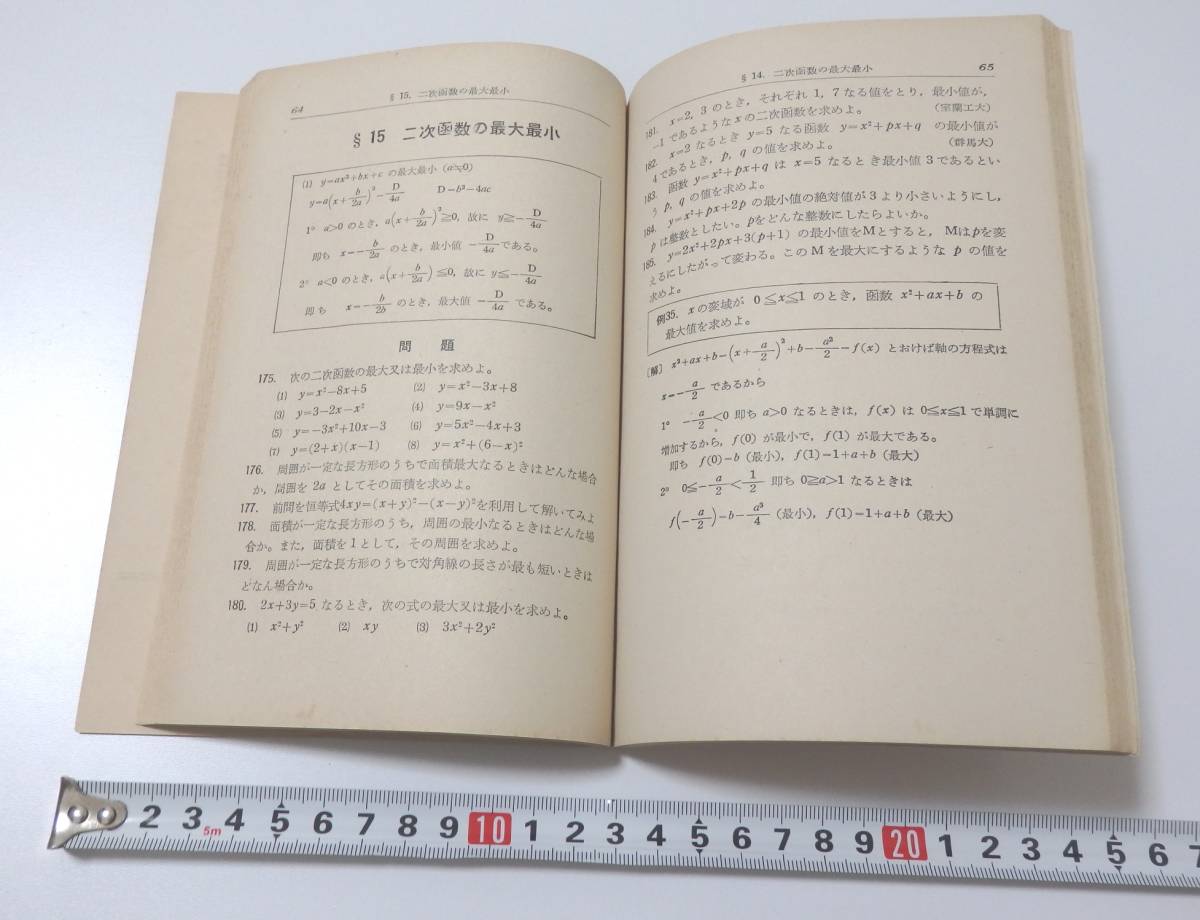 64
§ 15. 二次函数の最大最小
§ 15 二次函数の最大最小
(1) y=ax²+bx+c の最大最小 (a≒0)
y=a(x+b/2a)²−D/4a D=b²−4ac
1° a>0 のとき, a(x+b/2a)²≧0, 故に y≧−D/4a
即ち x=−b/2a のとき, 最小値 −D/4a である。
2° a<0 のとき, a(x+b/2a)≦0, 故に y≦−D/4a
即ち x=−b/2b のとき, 最大値 −D/4a である。
問 題
175. 次の二次函数の最大又は最小を求めよ。
(1) y=x²−8x+5 (2) y=x²−3x+8
(3) y=3−2x−x² (4) y=9x−x²
(5) y=−3x²+10x−3 (6) y=5x²−4x+3
(7) y=(2+x)(x−1) (8) y=x²+(6−x)²
176. 周囲が一定な長方形のうちで面積最大なるときはどんな場合
か, 周囲を 2a としてその面積を求めよ。
177. 前問を恒等式4xy=(x+y)²−(x−y)²を利用して解いてみよ
178. 面積が一定な長方形のうち, 周囲の最小なるときはどんな場
合か。また, 面積を1として, その周囲を求めよ。
179. 周囲が一定な長方形のうちで対角線の長さが最も短いときは
どなん場合か。
180. 2x+3y=5 なるとき, 次の式の最大又は最小を求めよ。
(1) x²+y² (2) xy (3) 3x²+2y²
§ 14. 二次函数の最大最小
65
181. x=2, 3 のとき, それぞれ 1, 7 なる値をとり, 最小値が,
−1であるようなxの二次函数を求めよ。 (室蘭工大)
182. x=2 なるとき y=5 なる函数 y=x²+px+q の最小値が
4であるとき, p, q の値を求めよ。 (群馬大)
183. 函数 y=x²+px+q は x=5 なるとき最小値3であるとい
う p, q の値を求めよ。
184. y=x²+px+2p の最小値の絶対値が3より小さいようにし,
p は整数としたい。pをどんな整数にしたらよいか。
185. y=2x²+2px+3(p+1) の最小値をMとすると, Mはpを変
えるにしたがって変わる。このMを最大にするような p の値を
求めよ。
例35. xの変域が 0≦x≦1 のとき, 函数 x²+ax+b の
最大値を求めよ。
〔解〕 x²+ax+b=(x+a/2)²+b−a²/2=f(x) とおけば軸の方程式は
x=−a/2 であるから
1° −a/2<0 即ち a>0 なるときは, f(x) は 0≦x≦1で単調に
増加するから, f(0) が最小で, f(1) が最大である。
即ち f(0)=b (最小), f(1)=1+a+b (最大)
2° 0≦−a/2<1/2 即ち 0≧a>1 なるときは
f(−a/2)=b−a²/4 (最小), f(1)=1+a+b (最大)
2 3 4 5 6 7 8 9 10 1 2 3 4 5 6 7 8 9 20 1 2 3 4 5 6 7
5m